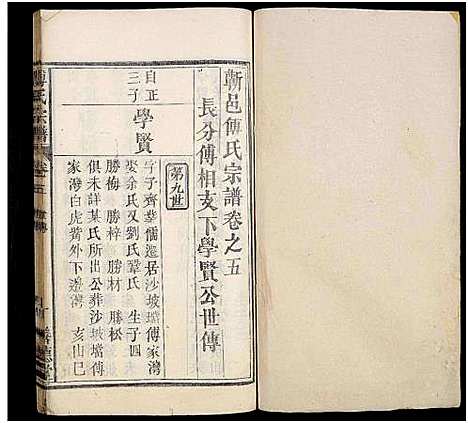 蘄邑傅氏宗譜卷之五
長分傅相支下學賢公世傳
第九世
自正
三子
學賢
字子齊業儒遷居沙坡壋傅家灣
娶余氏又劉氏龔氏 生子四
勝梅 勝梓 勝材 勝松
俱未詳某氏所出公葬沙坡壋傅
家灣白虎嘴外下邊灣 亥山巳
傅氏宗譜
卷五